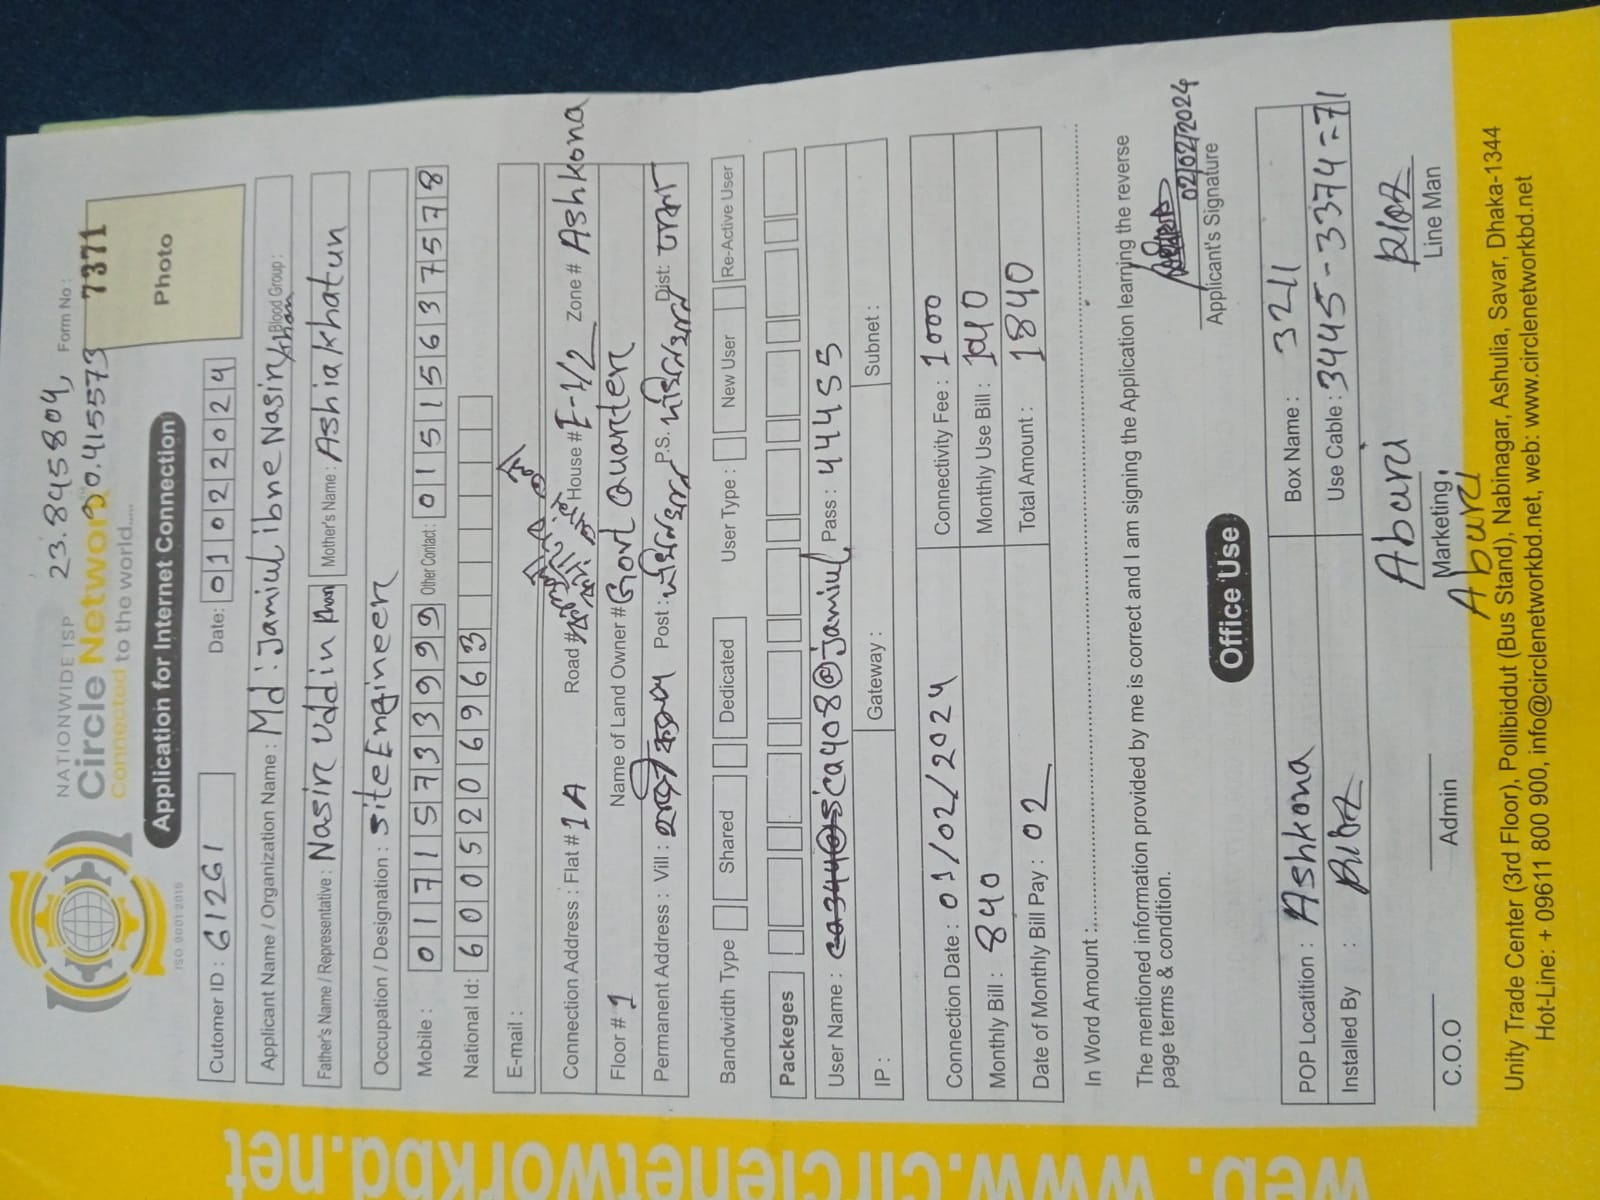 NATIONWIDE ISP
23.845804,
Form No :
Circle Network
90.415573
7371
Connected to the world.....
ISO 9001 2015
Application for Internet Connection
Photo
Cutomer ID : 61261
Date: 01022024
Applicant Name / Organization Name : Md: Jamiul ibne Nasir
Blood Group :
Father's Name / Representative : Nasir Uddin Khan
Mother's Name : Ashia khatun
Occupation / Designation : Site Engineer
Mobile : 01715733999
Other Contact: 01515637578
National Id: 6005206963
E-mail :
Connection Address : Flat # 1A
Road #
House # I-1/2
Zone # Ashkona
Floor # 1
Name of Land Owner # Govt Quarter
Permanent Address : Vill :
Post :
P.S.
Dist: ঢাকা
Bandwidth Type
Shared
Dedicated
User Type :
New User
Re-Active User
Packeges
User Name : ca3444@ sca408@jamiul
Pass : 44455
IP :
Gateway :
Subnet :
Connection Date : 01/02/2024
Connectivity Fee : 1000
Monthly Bill : 840
Monthly Use Bill :
Date of Monthly Bill Pay : 02
Total Amount : 1840
In Word Amount :
The mentioned information provided by me is correct and I am signing the Application learning the reverse
page terms & condition.
02/02/2024
Applicant's Signature
Office Use
POP Locatition : Ashkona
Box Name : 3211
Installed By :
Use Cable : 3445-3374=71
C.O.O
Admin
Marketing
Line Man
Unity Trade Center (3rd Floor), Pollibiddut (Bus Stand), Nabinagar, Ashulia, Savar, Dhaka-1344
Hot-Line: + 09611 800 900, info@circlenetworkbd.net, web: www.circlenetworkbd.net
web: www.circlenetworkbd.net